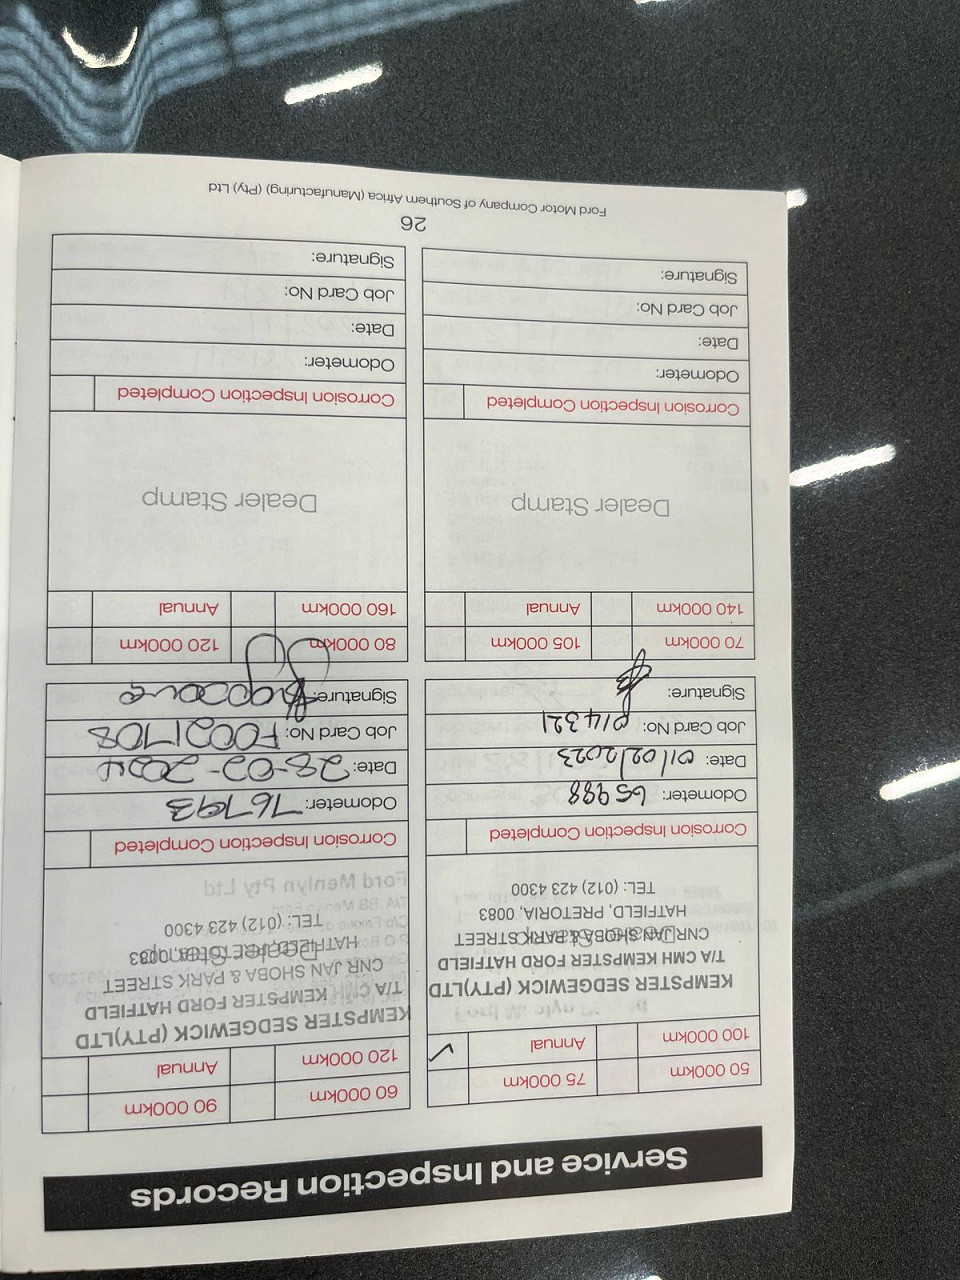 Service and Inspection Records
50 000km 75 000km
100 000km Annual ✓
KEMPSTER SEDGEWICK (PTY)LTD
T/A CMH KEMPSTER FORD HATFIELD
CNR JAN SHOBA & PARK STREET
HATFIELD, PRETORIA, 0083
TEL: (012) 423 4300
Corrosion Inspection Completed
Odometer: 65988
Date: 01/02/2023
Job Card No: 214321
Signature:
60 000km 90 000km
120 000km Annual
KEMPSTER SEDGEWICK (PTY)LTD
T/A CMH KEMPSTER FORD HATFIELD
CNR JAN SHOBA & PARK STREET
HATFIELD, PRETORIA, 0083
TEL: (012) 423 4300
Corrosion Inspection Completed
Odometer: 76793
Date: 28-02-2024
Job Card No: F0021708
Signature:
70 000km 105 000km
140 000km Annual
Dealer Stamp
Corrosion Inspection Completed
Odometer:
Date:
Job Card No:
Signature:
80 000km 120 000km
160 000km Annual
Dealer Stamp
Corrosion Inspection Completed
Odometer:
Date:
Job Card No:
Signature:
26
Ford Motor Company of Southern Africa (Manufacturing) (Pty) Ltd